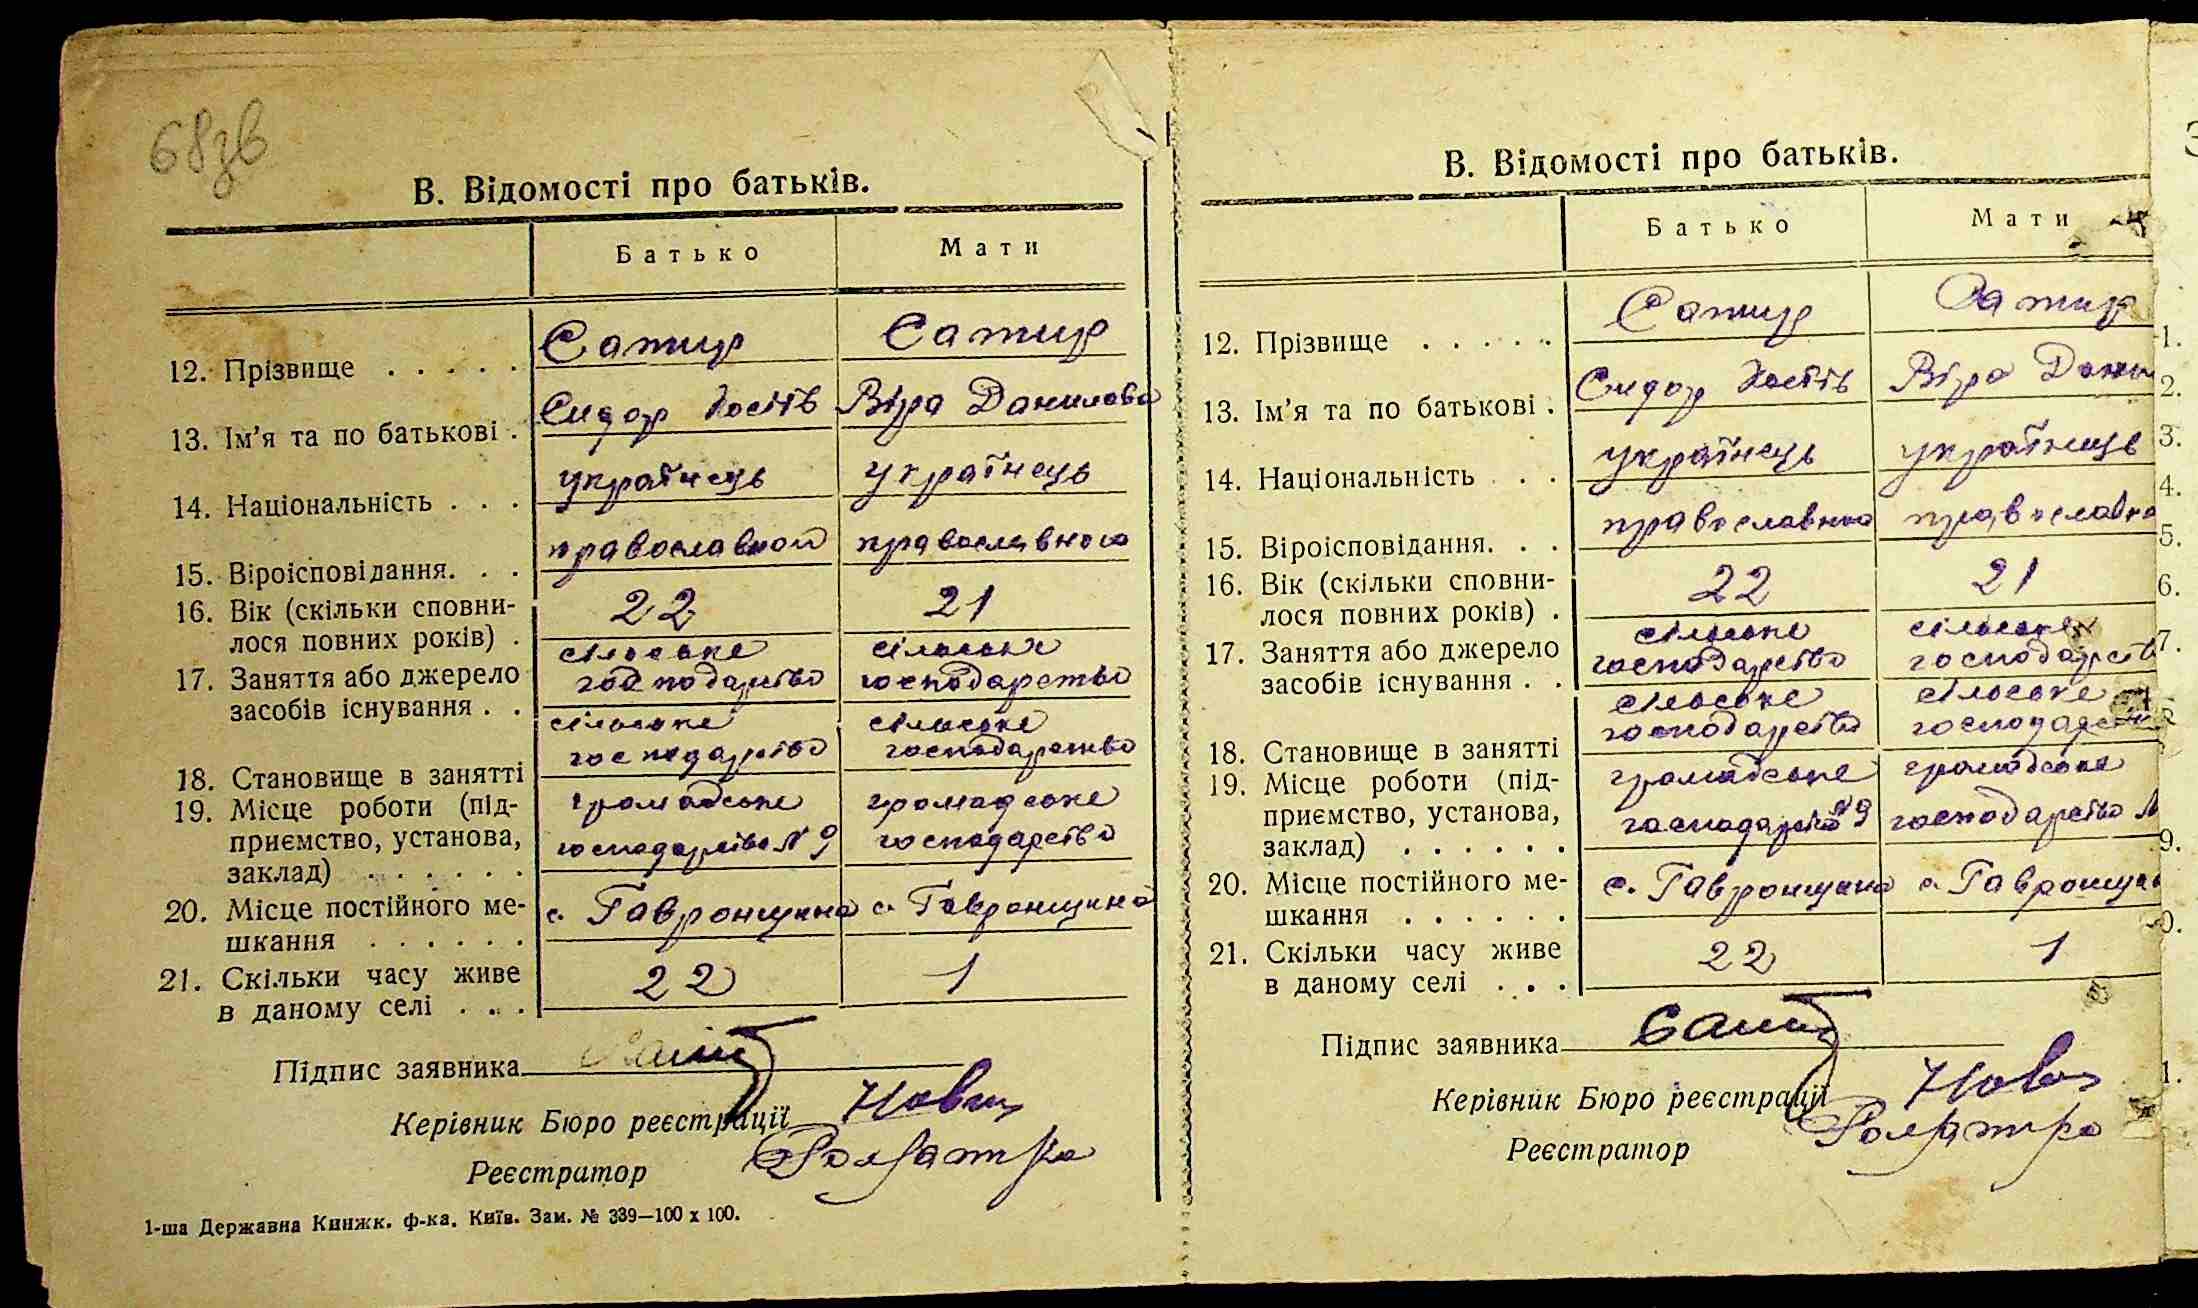 68зв
В. Відомості про батьків.
Батько Мати
12. Прізвище . . . . . Сатир Сатир
13. Ім'я та по батькові . Сидор Костів Віра Данилова
14. Національність . . . українець українець
15. Віроісповідання. . . православной православного
16. Вік (скільки сповни-
лося повних років) . 22 21
17. Заняття або джерело сільське сільське
засобів існування . . господарство господарство
сільське сільське
18. Становище в занятті господарство господарство
19. Місце роботи (під- громадське громадське
приємство, установа, господарство № 9 господарство
заклад) . . . . . .
20. Місце постійного ме- с. Гавронщина с. Гавронщина
шкання . . . . . .
21. Скільки часу живе 22 1
в даному селі . . .
Підпис заявника
Керівник Бюро реєстрації
Реєстратор
1-ша Державна Книжк. ф-ка. Київ. Зам. № 339—100 х 100.
В. Відомості про батьків.
Батько Мати
12. Прізвище . . . . . Сатир Сатир
13. Ім'я та по батькові . Сидор Костів Віра Дани
14. Національність . . . українець українець
15. Віроісповідання. . . православного православно
16. Вік (скільки сповни-
лося повних років) . 22 21
17. Заняття або джерело сільське сільське
засобів існування . . господарство господарств
сільське сільське
18. Становище в занятті господарство господарств
19. Місце роботи (під- громадське громадське
приємство, установа, господарство № 9 господарство №
заклад) . . . . . .
20. Місце постійного ме- с. Гавронщина с. Гавронщин
шкання . . . . . .
21. Скільки часу живе 22 1
в даному селі . . .
Підпис заявника
Керівник Бюро реєстрації
Реєстратор
1.
2.
3.
4.
5.
6.
7.
9.
0.
1.